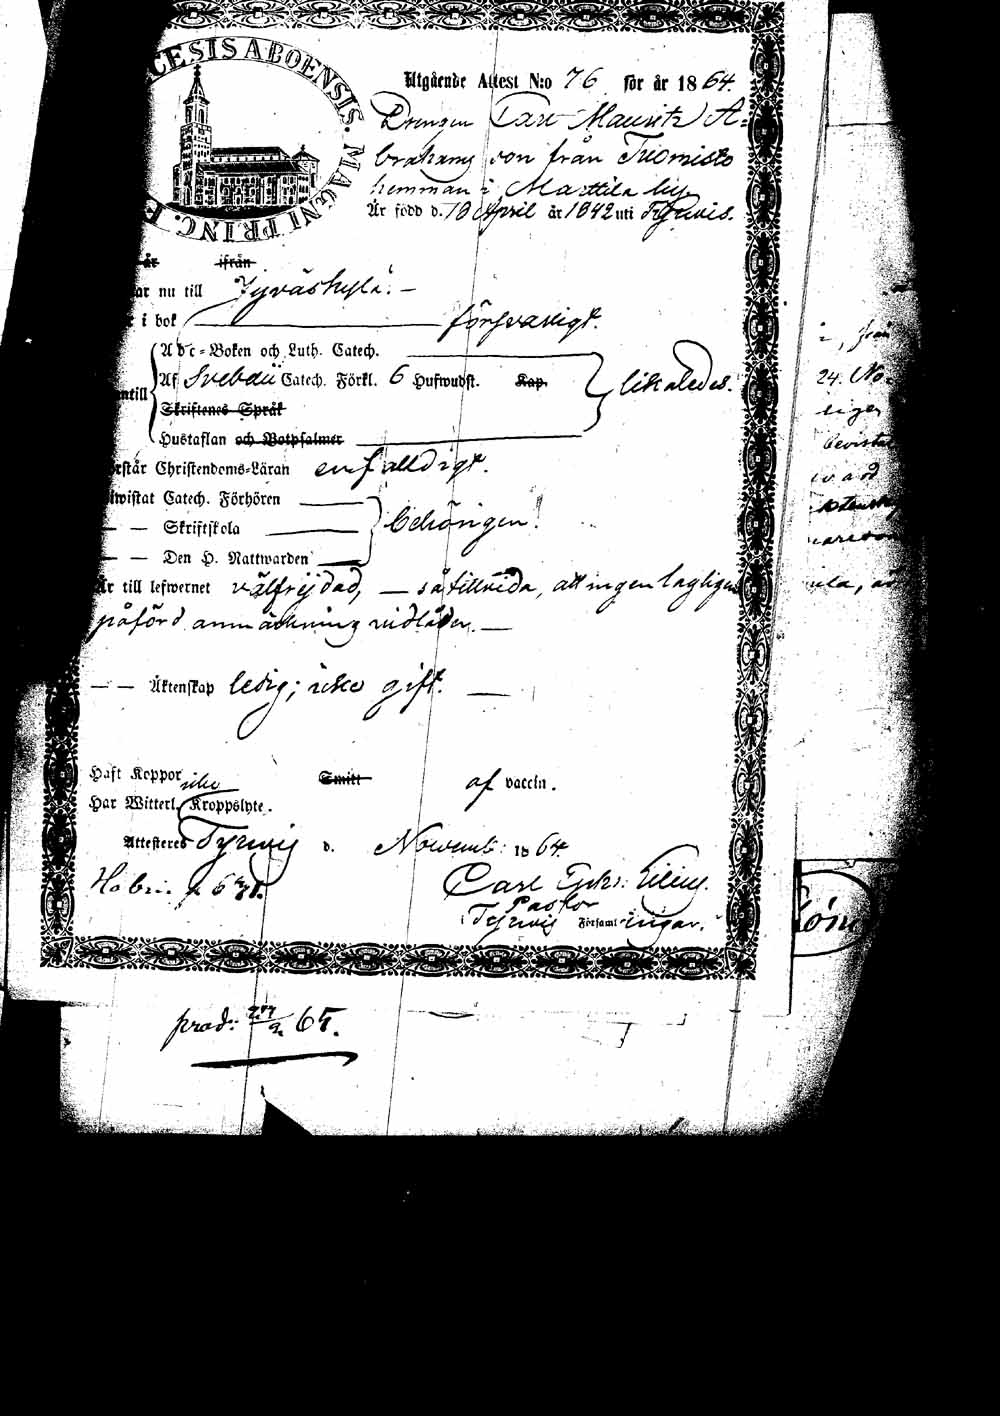 CESIS ABOENSIS. MAGNI PRINC. F
Utgående Attest N:o 76 för år 1864.
Drengen Carl Mauritz A-
brahams son från Tuomisto
hemman i Marttila by
Är född d. 19 April år 1842 uti Tyrvis.
är ifrån
ar nu till Jyväskylä. —
i bok försvarigt.
Abc-Boken och Luth. Catech.
ntill Af Svebelii Catech. Förkl. 6 Hufwudst. Kap. likaledes.
Skriftenes Språk
Hustaflan och Botpsalmer
rstår Christendoms-Läran enfalldigt.
wistat Catech. Förhören
— — Skriftskola behörigen!
— — Den H. Nattwarden
r till lefwernet välfrejdad, — såtillvida, att ingen lagligen
påförd anmärkning vidlåder. —
— — Äktenskap ledig; icke gift. —
Haft Koppor Smitt af vaccin.
Har Witterl. icke Kroppslyte.
Attesteras Tyrvis d. Novemb: 1864.
Carl
Pastor
i Tyrvis Församlingar.
prod: 65.
i, från
24. No-
liges
bevistat